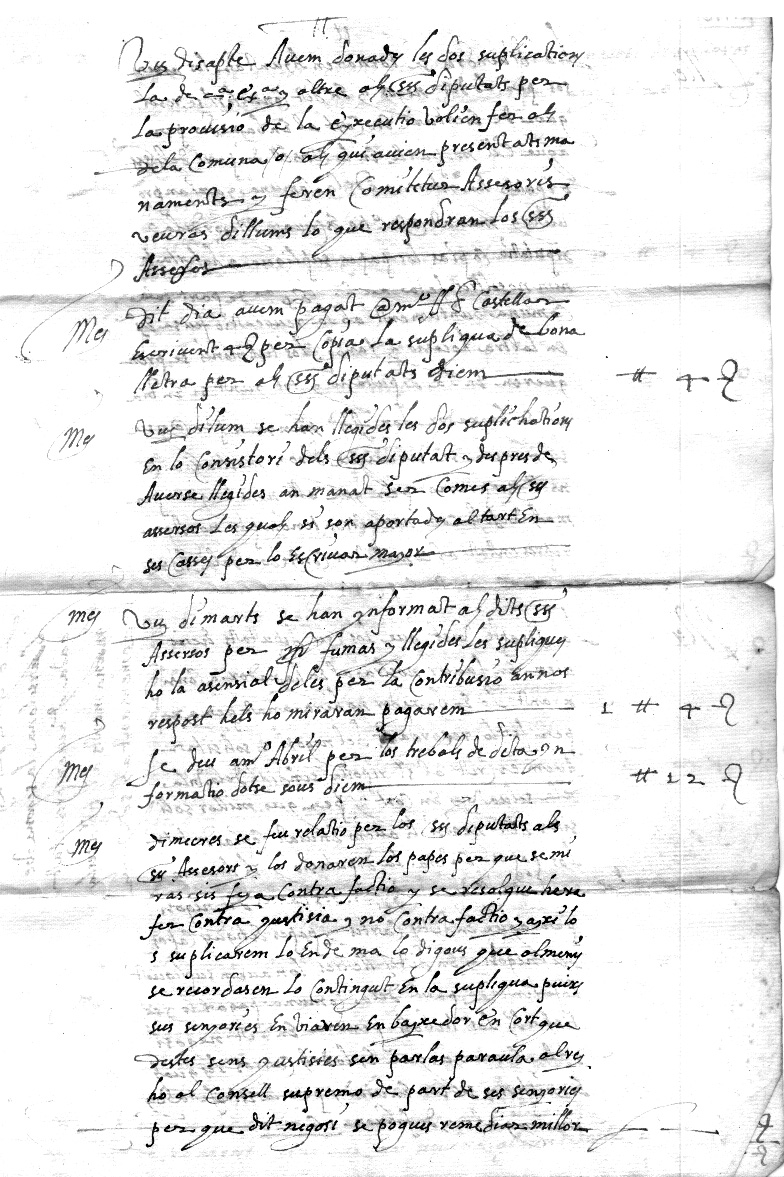 Vuy disapte Avem donady les dos suplications
La de y altre als SSrs diputats per
La provisio de la exxecutio volien fer als
dela Comuna als qui avien presentats ma
naments y feren Comitetur Assesoris
veuras dilluns lo que respondran los SSrs
Assesos
Mes dit dia avem pagat Castellar
Escrivent 4 per Copia La supliqua de bona
lletra per als SSrs diputats diem ll 4
Mes Vuy dilum se han llegides les dos suplichations
En lo Consistori dels SSrs diputat y despres de
Averse llegides an manat ser Comes als SSrs
assersos Les quals si son aportady al tart En
ses Casses per lo Escrivar major
Mes Vuy dimarts se han ynformat als dits SSrs
Assersos per fumas y llegides Les supliques
ho la asensial deles per La Contribusio an nos
respost hels ho miraran pagarem 1 ll 4
Mes Se deu a mr Abril per los trebals de dita yn
formatio dotse sous diem ll 12
Mes dimecres se feu relatio per los srs diputats als
srs Assesors y los donaren los papes per que se mi
ras sis feya Contra factio y se resolgue hera
fer Contra gustisia y no Contra factio y axi lo
s suplicarem Lo Ende ma lo digous que almeny
se recordasen Lo Contingut En la supliqua puix
sus senyories En viaren Enbaxedor en Cort que
destes sens gustisies sen parlas paraula al rey
ho al Consell supremo de part de ses senyories
per que dit negosi se pogues remediar millor